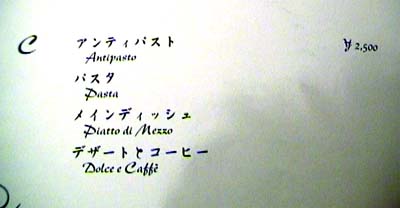 C アンティパスト ¥2,500
Antipasto
パスタ
Pasta
メインディッシュ
Piatto di Mezzo
デザートとコーヒー
Dolce e Caffè